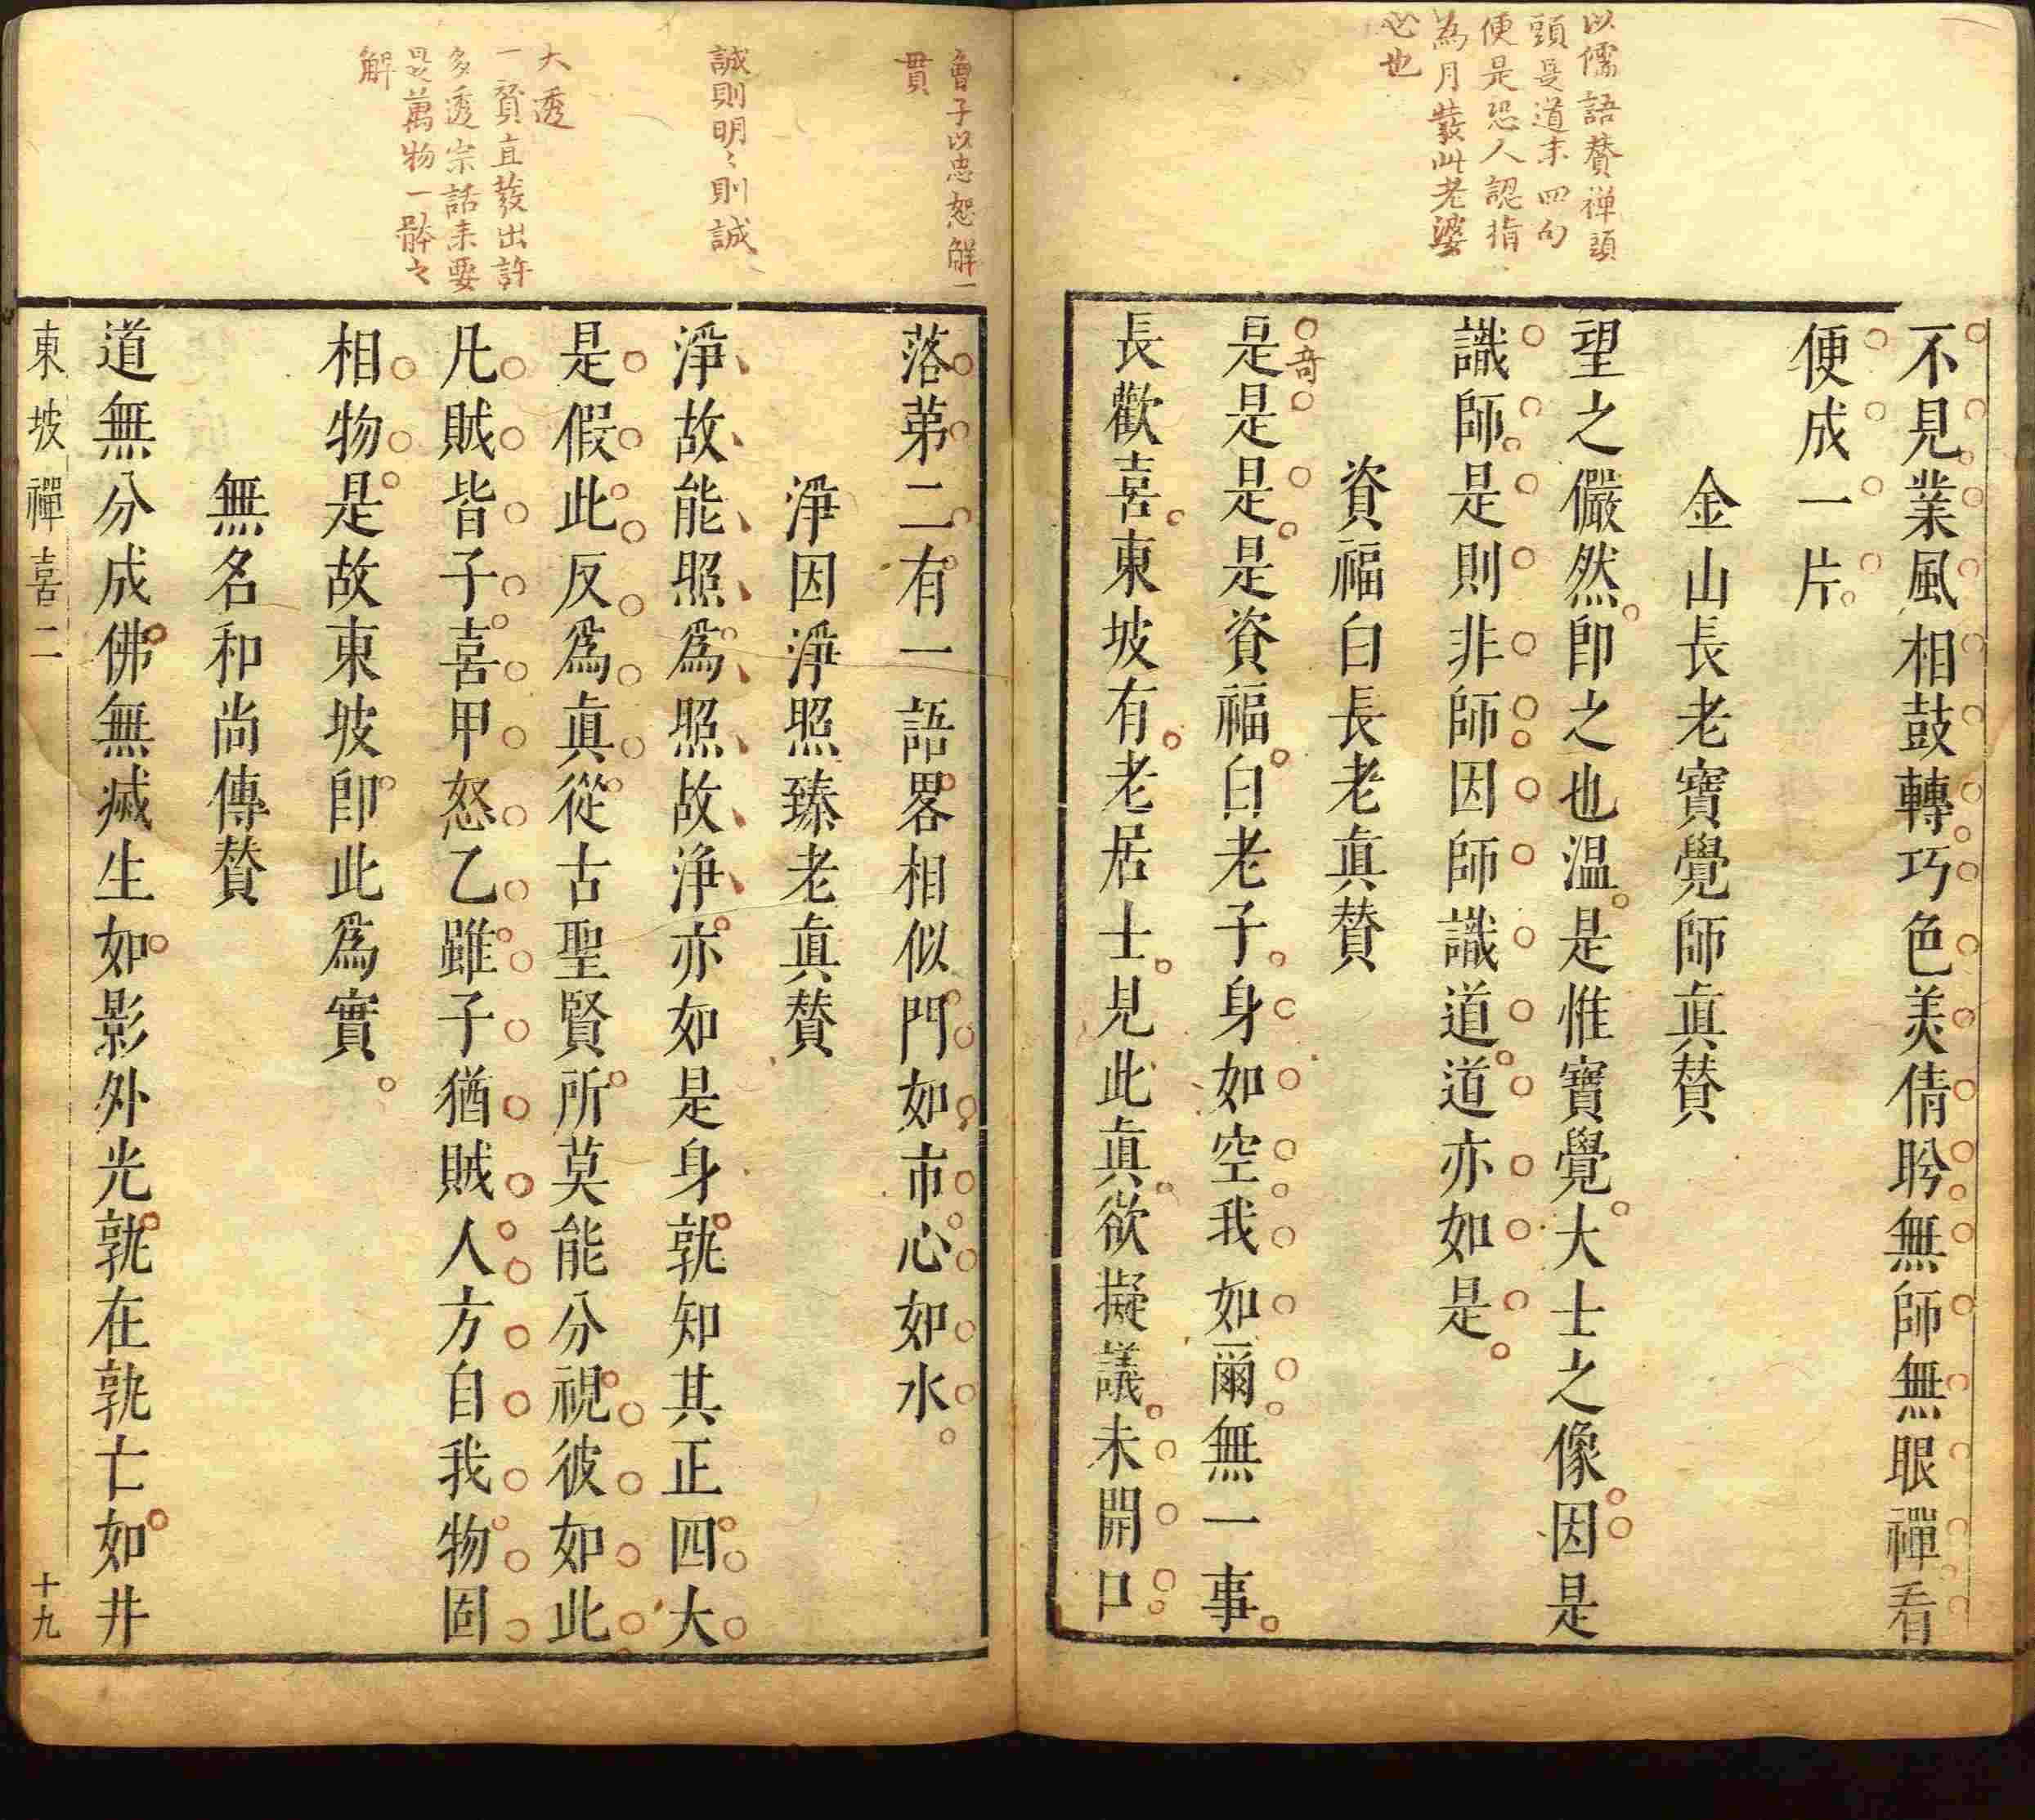 以儒語賛禅頭
頭是道末四句
便是恐人認指
為月發此老婆
心也
不見業風相鼓轉巧色美倩盻無師無眼禪看
便成一片
金山長老寶覺師眞賛
望之儼然卽之也温是惟寶覺大士之像因是
識師是則非師因師識道道亦如是
資福白長老眞賛
奇
是是是是資福白老子身如空我如爾無一事
長歡喜東坡有老居士見此眞欲擬議未開口
曾子以忠恕解一
貫
誠則明〻則誠
大透
一賛直發出許
多透宗話来要
是萬物一體之
解
落苐二有一語畧相似門如市心如水
淨因淨照臻老眞賛
淨故能照爲照故淨亦如是身孰知其正四大
是假此反爲眞從古聖賢所莫能分視彼如此
凡賊皆子喜甲怒乙雖子猶賊人方自我物固
相物是故東坡卽此爲實
無名和尚傳賛
道無分成佛無滅生如影外光孰在孰亡如井
東坡禪喜二
十九